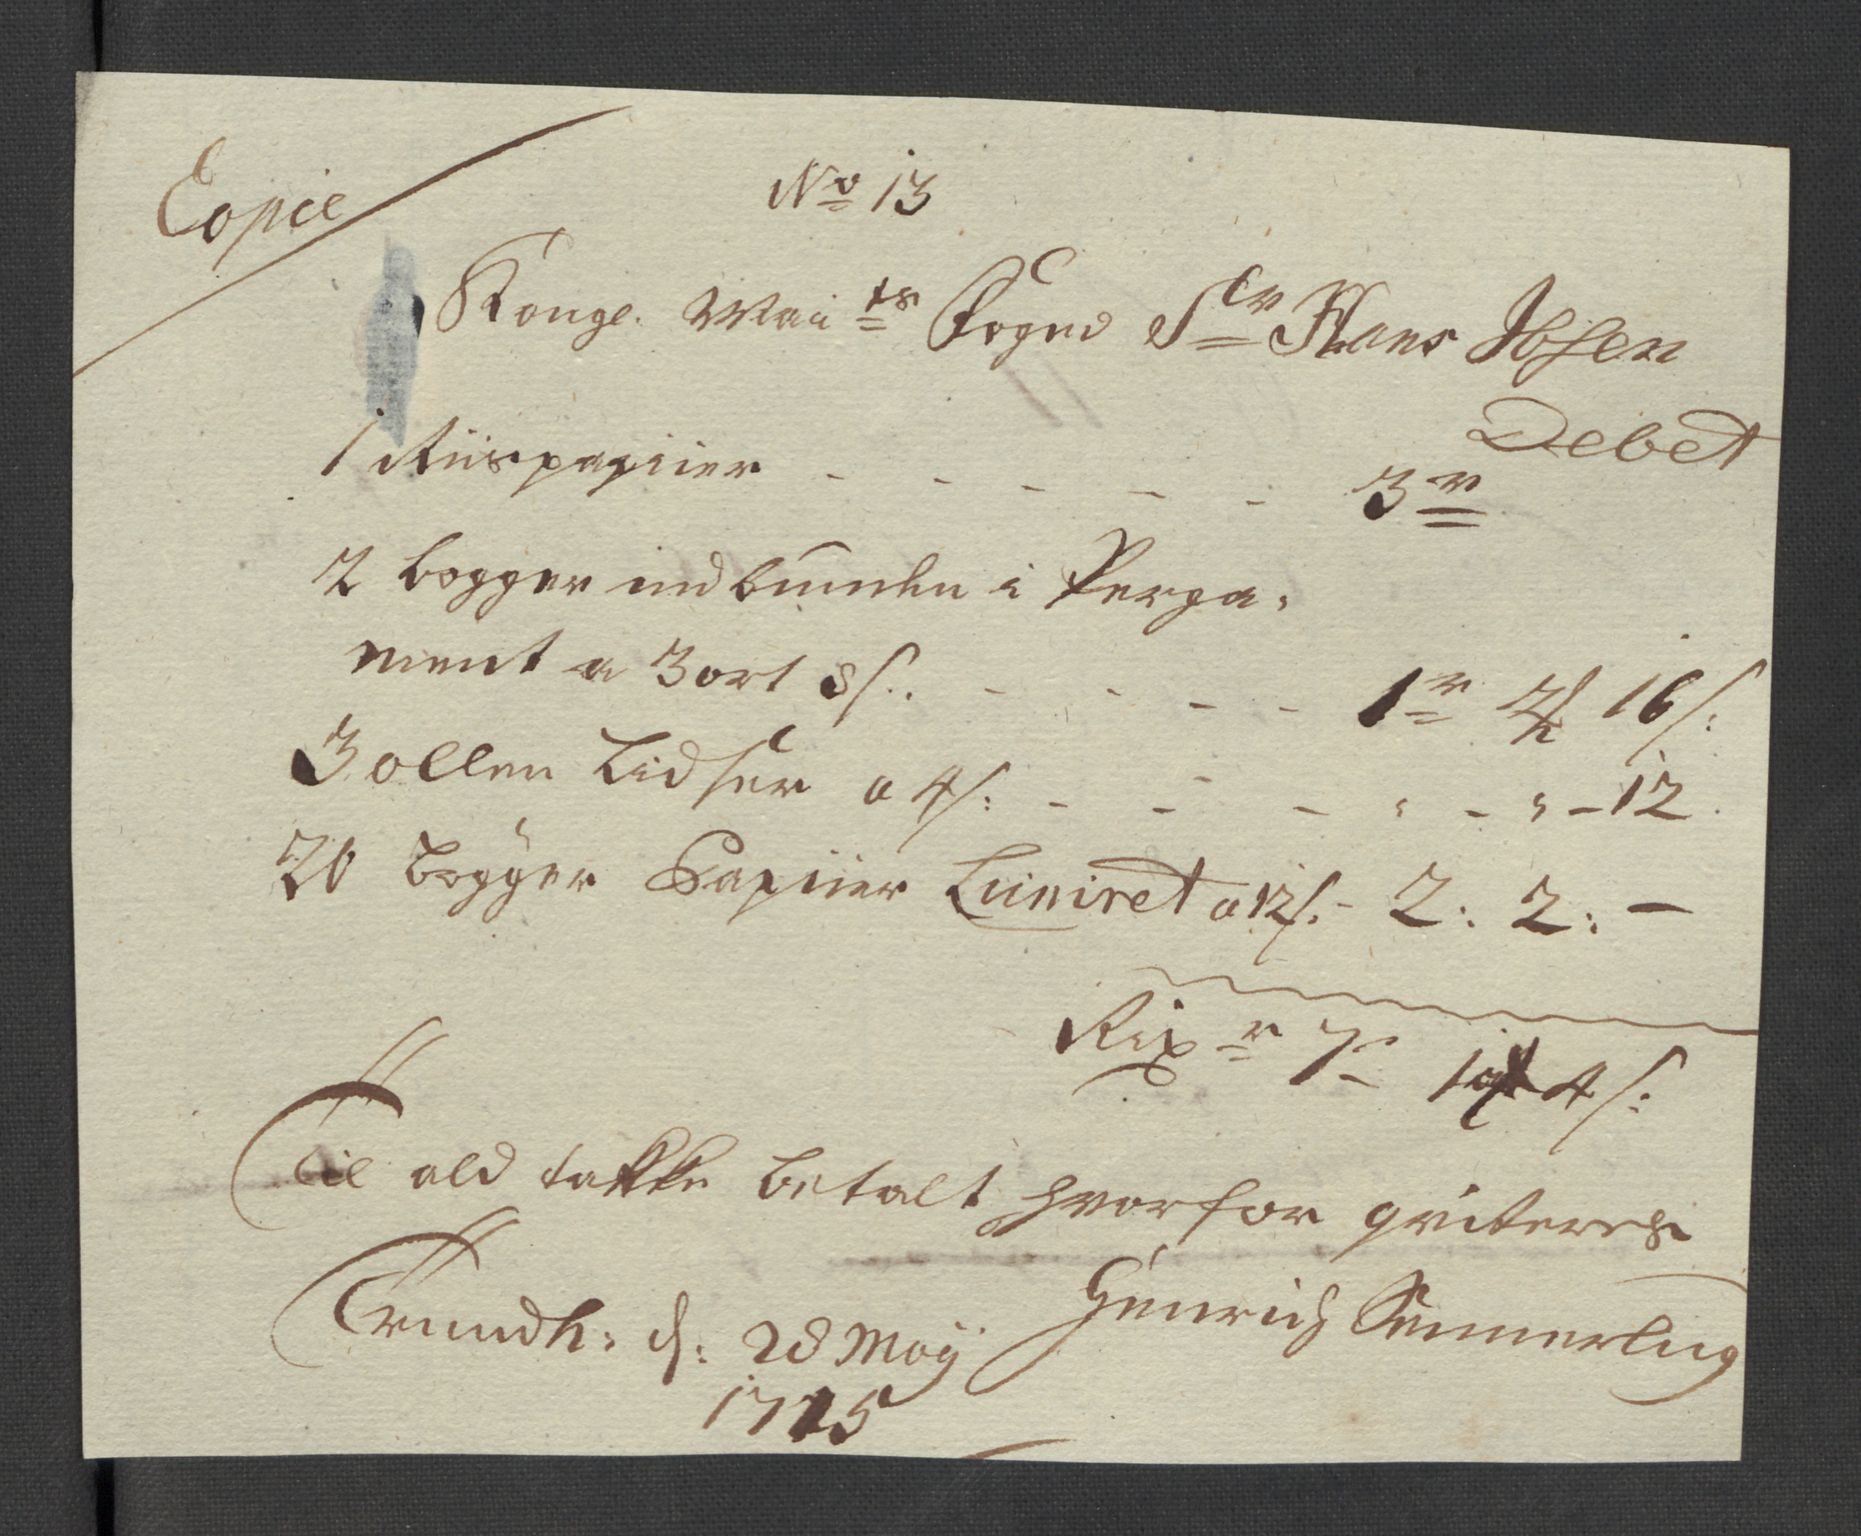 Copie
No 13
Kongl. Maÿ ts Foged Sr Hans Ibsen
Debet
1 Riispapiier - - - - - 3 r
2 bogger indbunden i Perga-
ment a 3 ort 8 s. - - - - 1 r 2 16 s:
3 allen Lidser a 4 s: - - - " - " - 12
20 bogger Papiier Liniret a 12 s. - 2: 2: -
Rix r 7 - 1 4 s:
Til ald takke betalt hvorfor qviteres
Trundh: d: 28 Maÿ
Henrich
1715